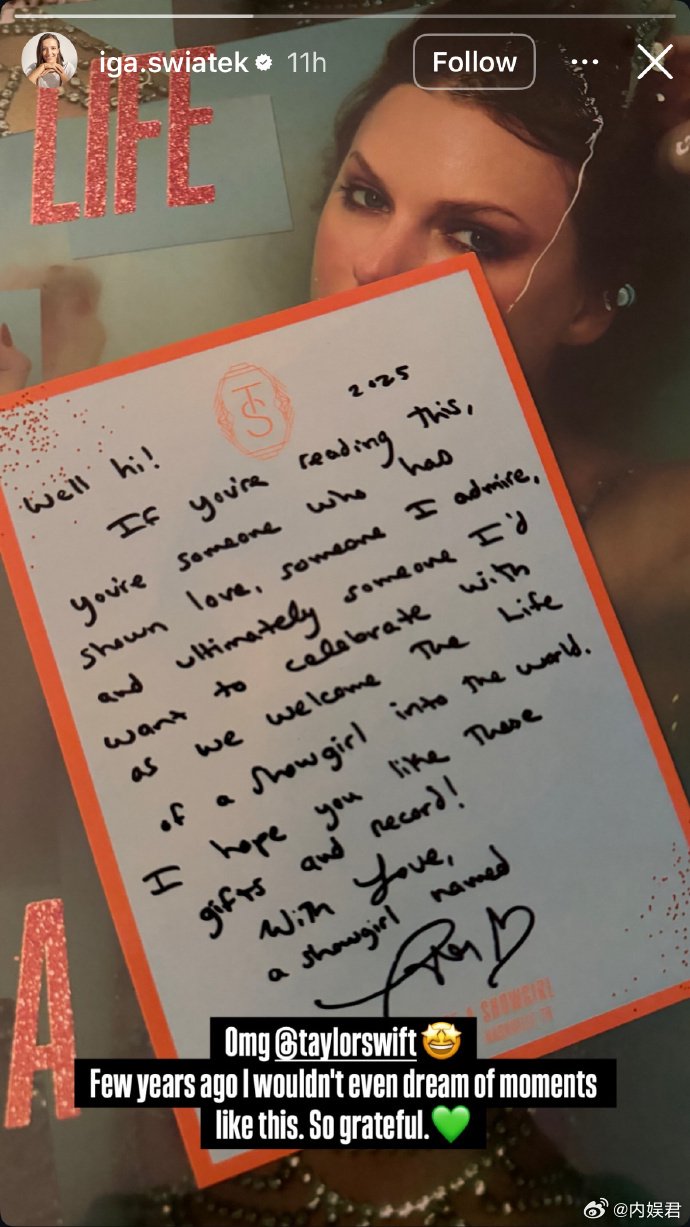 iga.swiatek 11h Follow
LIFE
TS
2025
Well hi!
If you're reading this,
you're someone who has
shown love, someone I admire,
and ultimately someone I'd
want to celebrate with
as we welcome The Life
of a Showgirl into the world.
I hope you like these
gifts and record!
With Love,
a showgirl named
A
A SHOWGIRL
Omg @taylorswift 🤩
Few years ago I wouldn't even dream of moments
like this. So grateful.💚
@内娱君